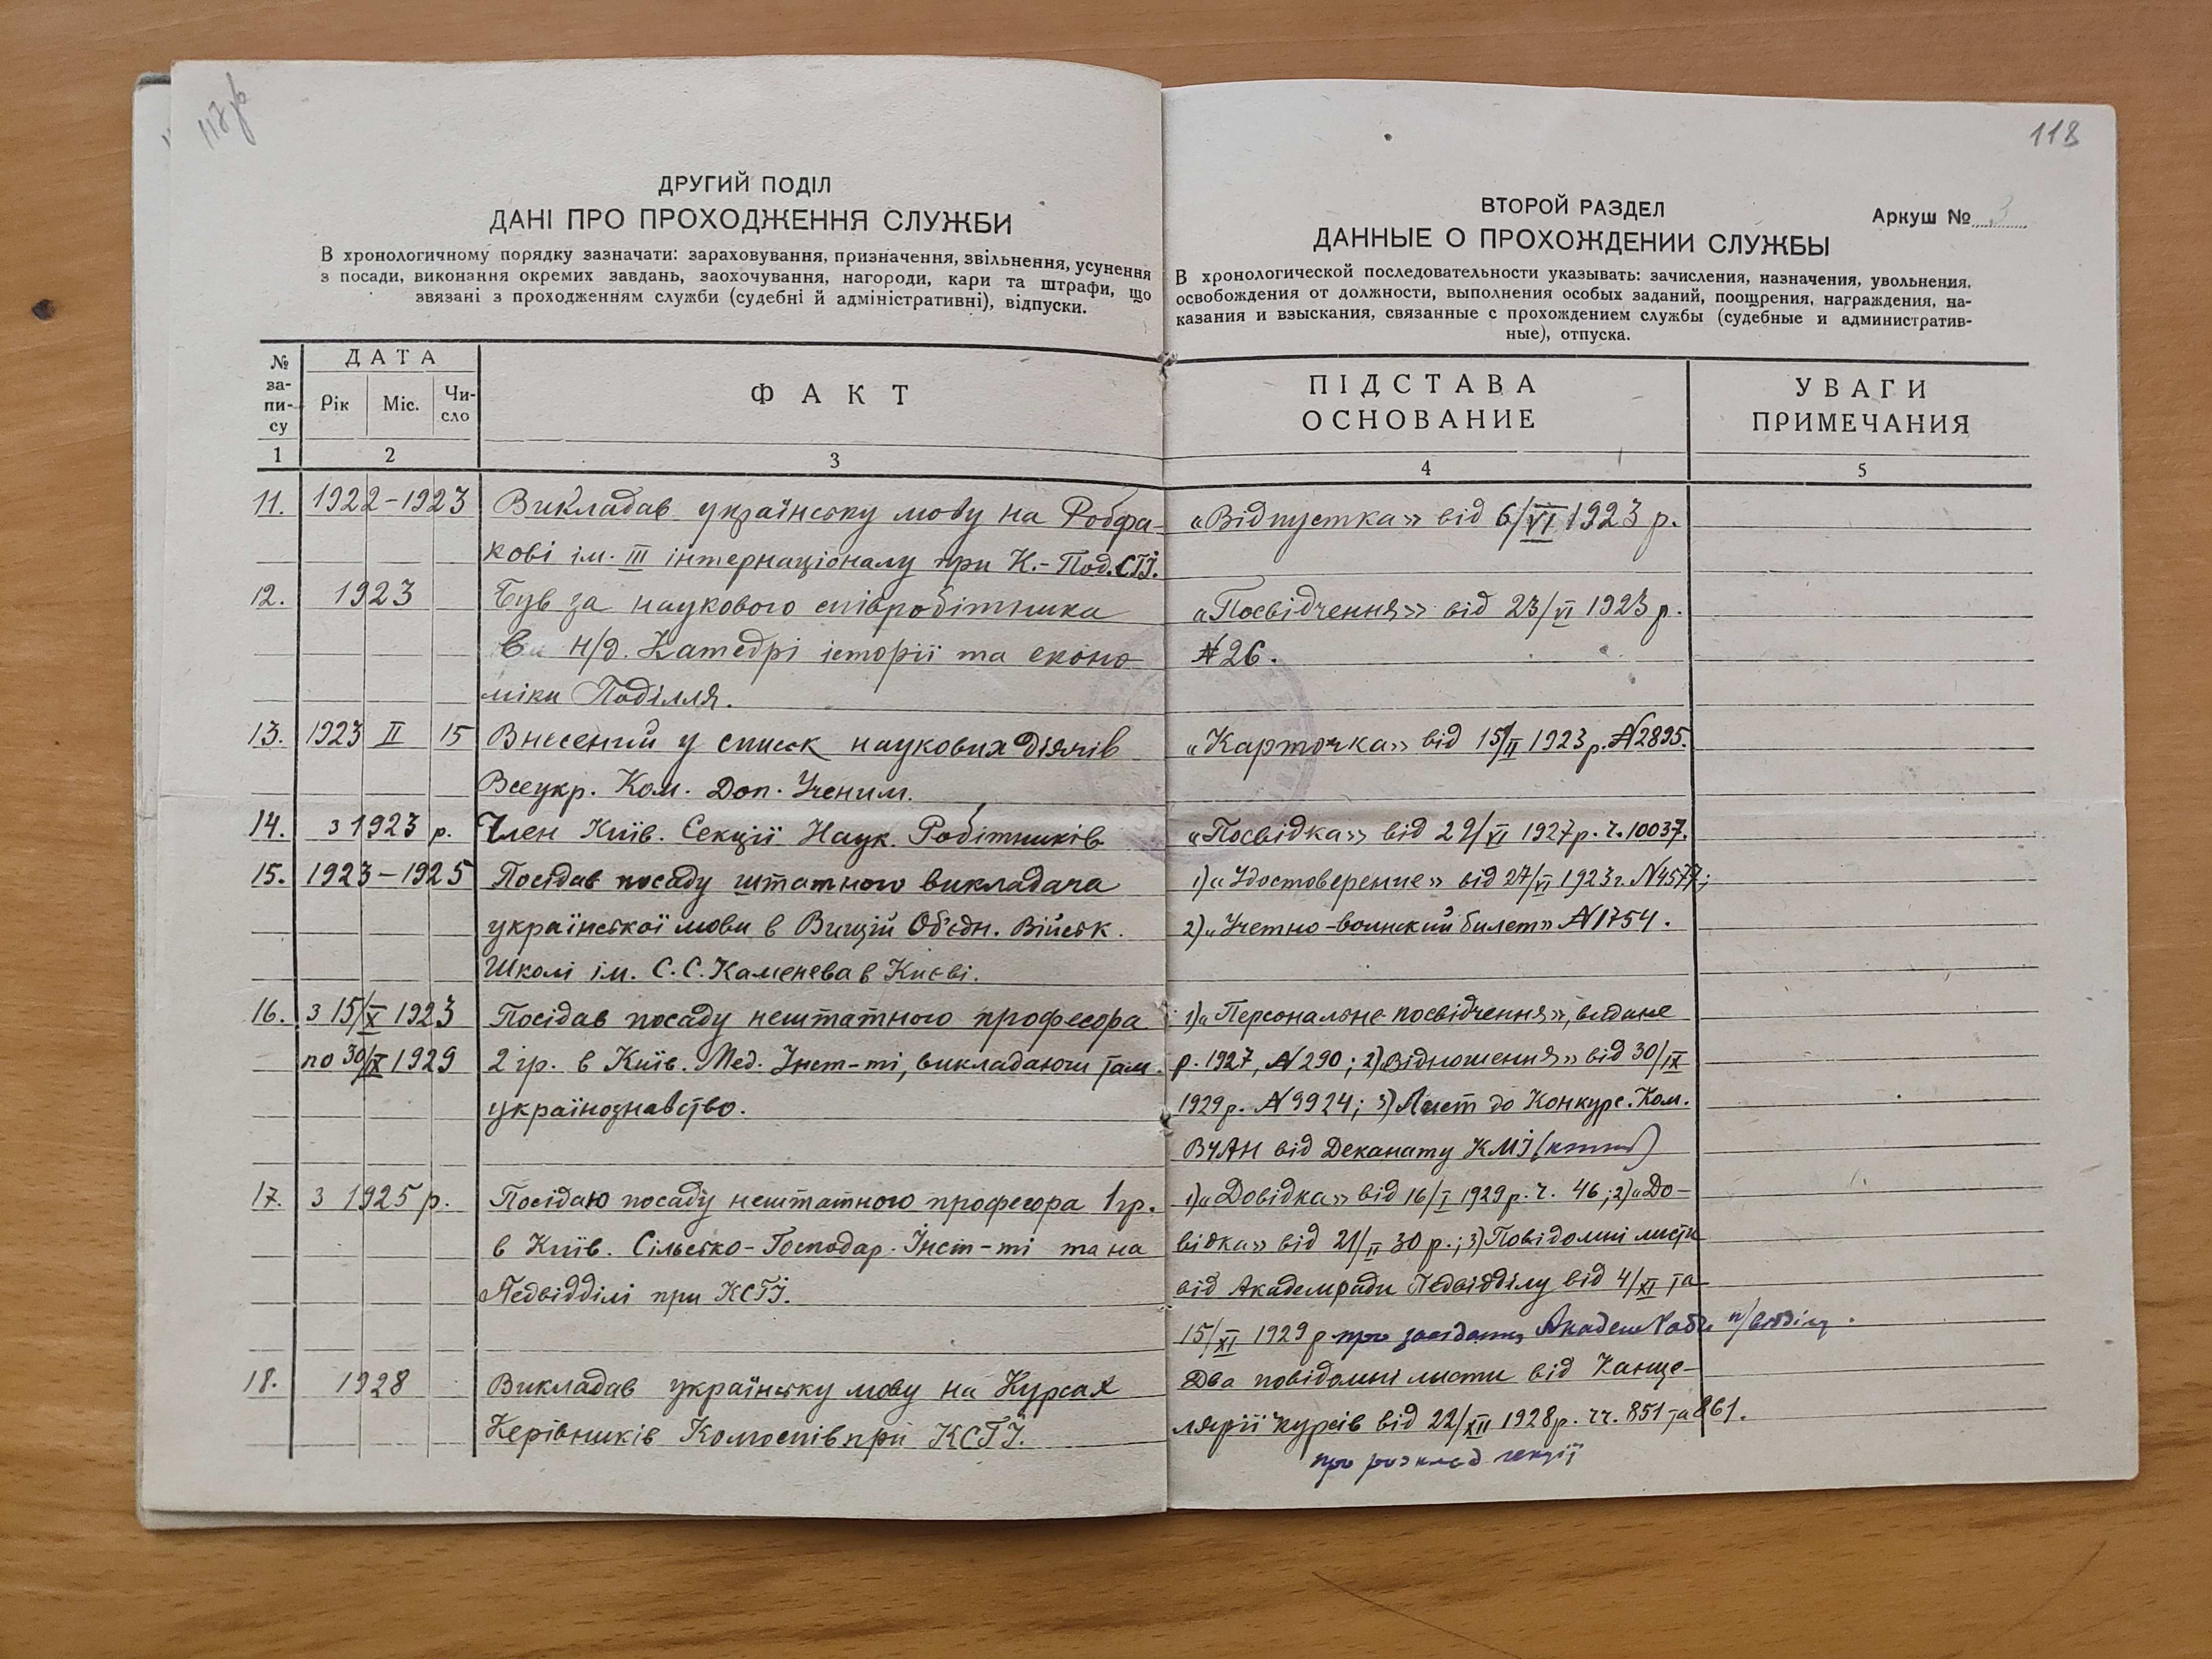 117зв
118
ДРУГИЙ ПОДІЛ
ДАНІ ПРО ПРОХОДЖЕННЯ СЛУЖБИ
В хронологичному порядку зазначати: зараховування, призначення, звільнення, усунення
з посади, виконання окремих завдань, заохочування, нагороди, кари та штрафи, що
звязані з проходженням служби (судебні й адміністративні), відпуски.
ВТОРОЙ РАЗДЕЛ
Аркуш № 3
ДАННЫЕ О ПРОХОЖДЕНИИ СЛУЖБЫ
В хронологической последовательности указывать: зачисления, назначения, увольнения,
освобождения от должности, выполнения особых заданий, поощрения, награждения, на-
казания и взыскания, связанные с прохождением службы (судебные и административ-
ные), отпуска.
№ за- пи- су
ДАТА
Рік Міс. Чи- сло
ФАКТ
ПІДСТАВА
ОСНОВАНИЕ
УВАГИ
ПРИМЕЧАНИЯ
1 2 3 4 5
11. 1922-1923 Викладав українську мову на Робфа- «Відпустка» від 6/VI 1923 р.
кові ім. III інтернаціоналу при К.-Под.СГІ.
12. 1923 Був за наукового співробітника «Посвідчення» від 23/VI 1923 р.
в Н/д. Катедрі історії та еконо- № 26.
міки Поділля.
13. 1923 II 15 Внесений у список наукових діячів «Карточка» від 15/II 1923 р. № 2895.
Всеукр. Ком. Доп. Ученим.
14. з 1923 р. Член Київ. Секції Наук. Робітників «Посвідка» від 29/VI 1927 р. ч. 10037.
15. 1923-1925 Посідав посаду штатного викладача 1) «Удостоверение» від 27/VI 1923 г. № 4577;
української мови в Вищій Об'єдн. Військ. 2) «Учетно-воинский билет» № 1754.
Школі ім. С.С. Каменева в Києві.
16. з 15/X 1923 Посідав посаду нештатного професора 1) «Персональне посвідчення», видане
по 30/IX 1929 2 гр. в Київ. Мед. Інст-ті, викладаючи там р. 1927, № 290; 2) «Відношення» від 30/IX
українознавство. 1929 р. № 9924; 3) Лист до Конкурс. Ком.
ВУАН від Деканату КМІ (копія)
17. з 1925 р. Посідаю посаду нештатного професора 1 гр. 1) «Довідка» від 16/I 1929 р. ч. 46; 2) «До-
в Київ. Сільсько-Господар. Інст-ті та на відка» від 21/II 30 р.; 3) Повідомні листи
Педвідділі при КСГІ. від Академради Педвідділу від 4/XI та
15/XI 1929 р про засідання Академ Ради п/відділу.
18. 1928 Викладав українську мову на Курсах Два повідомні листи від Канце-
Керівників Колгоспів при КСГІ. лярії курсів від 22/XII 1928 р. чч. 851 та 861.
про розклад лекції